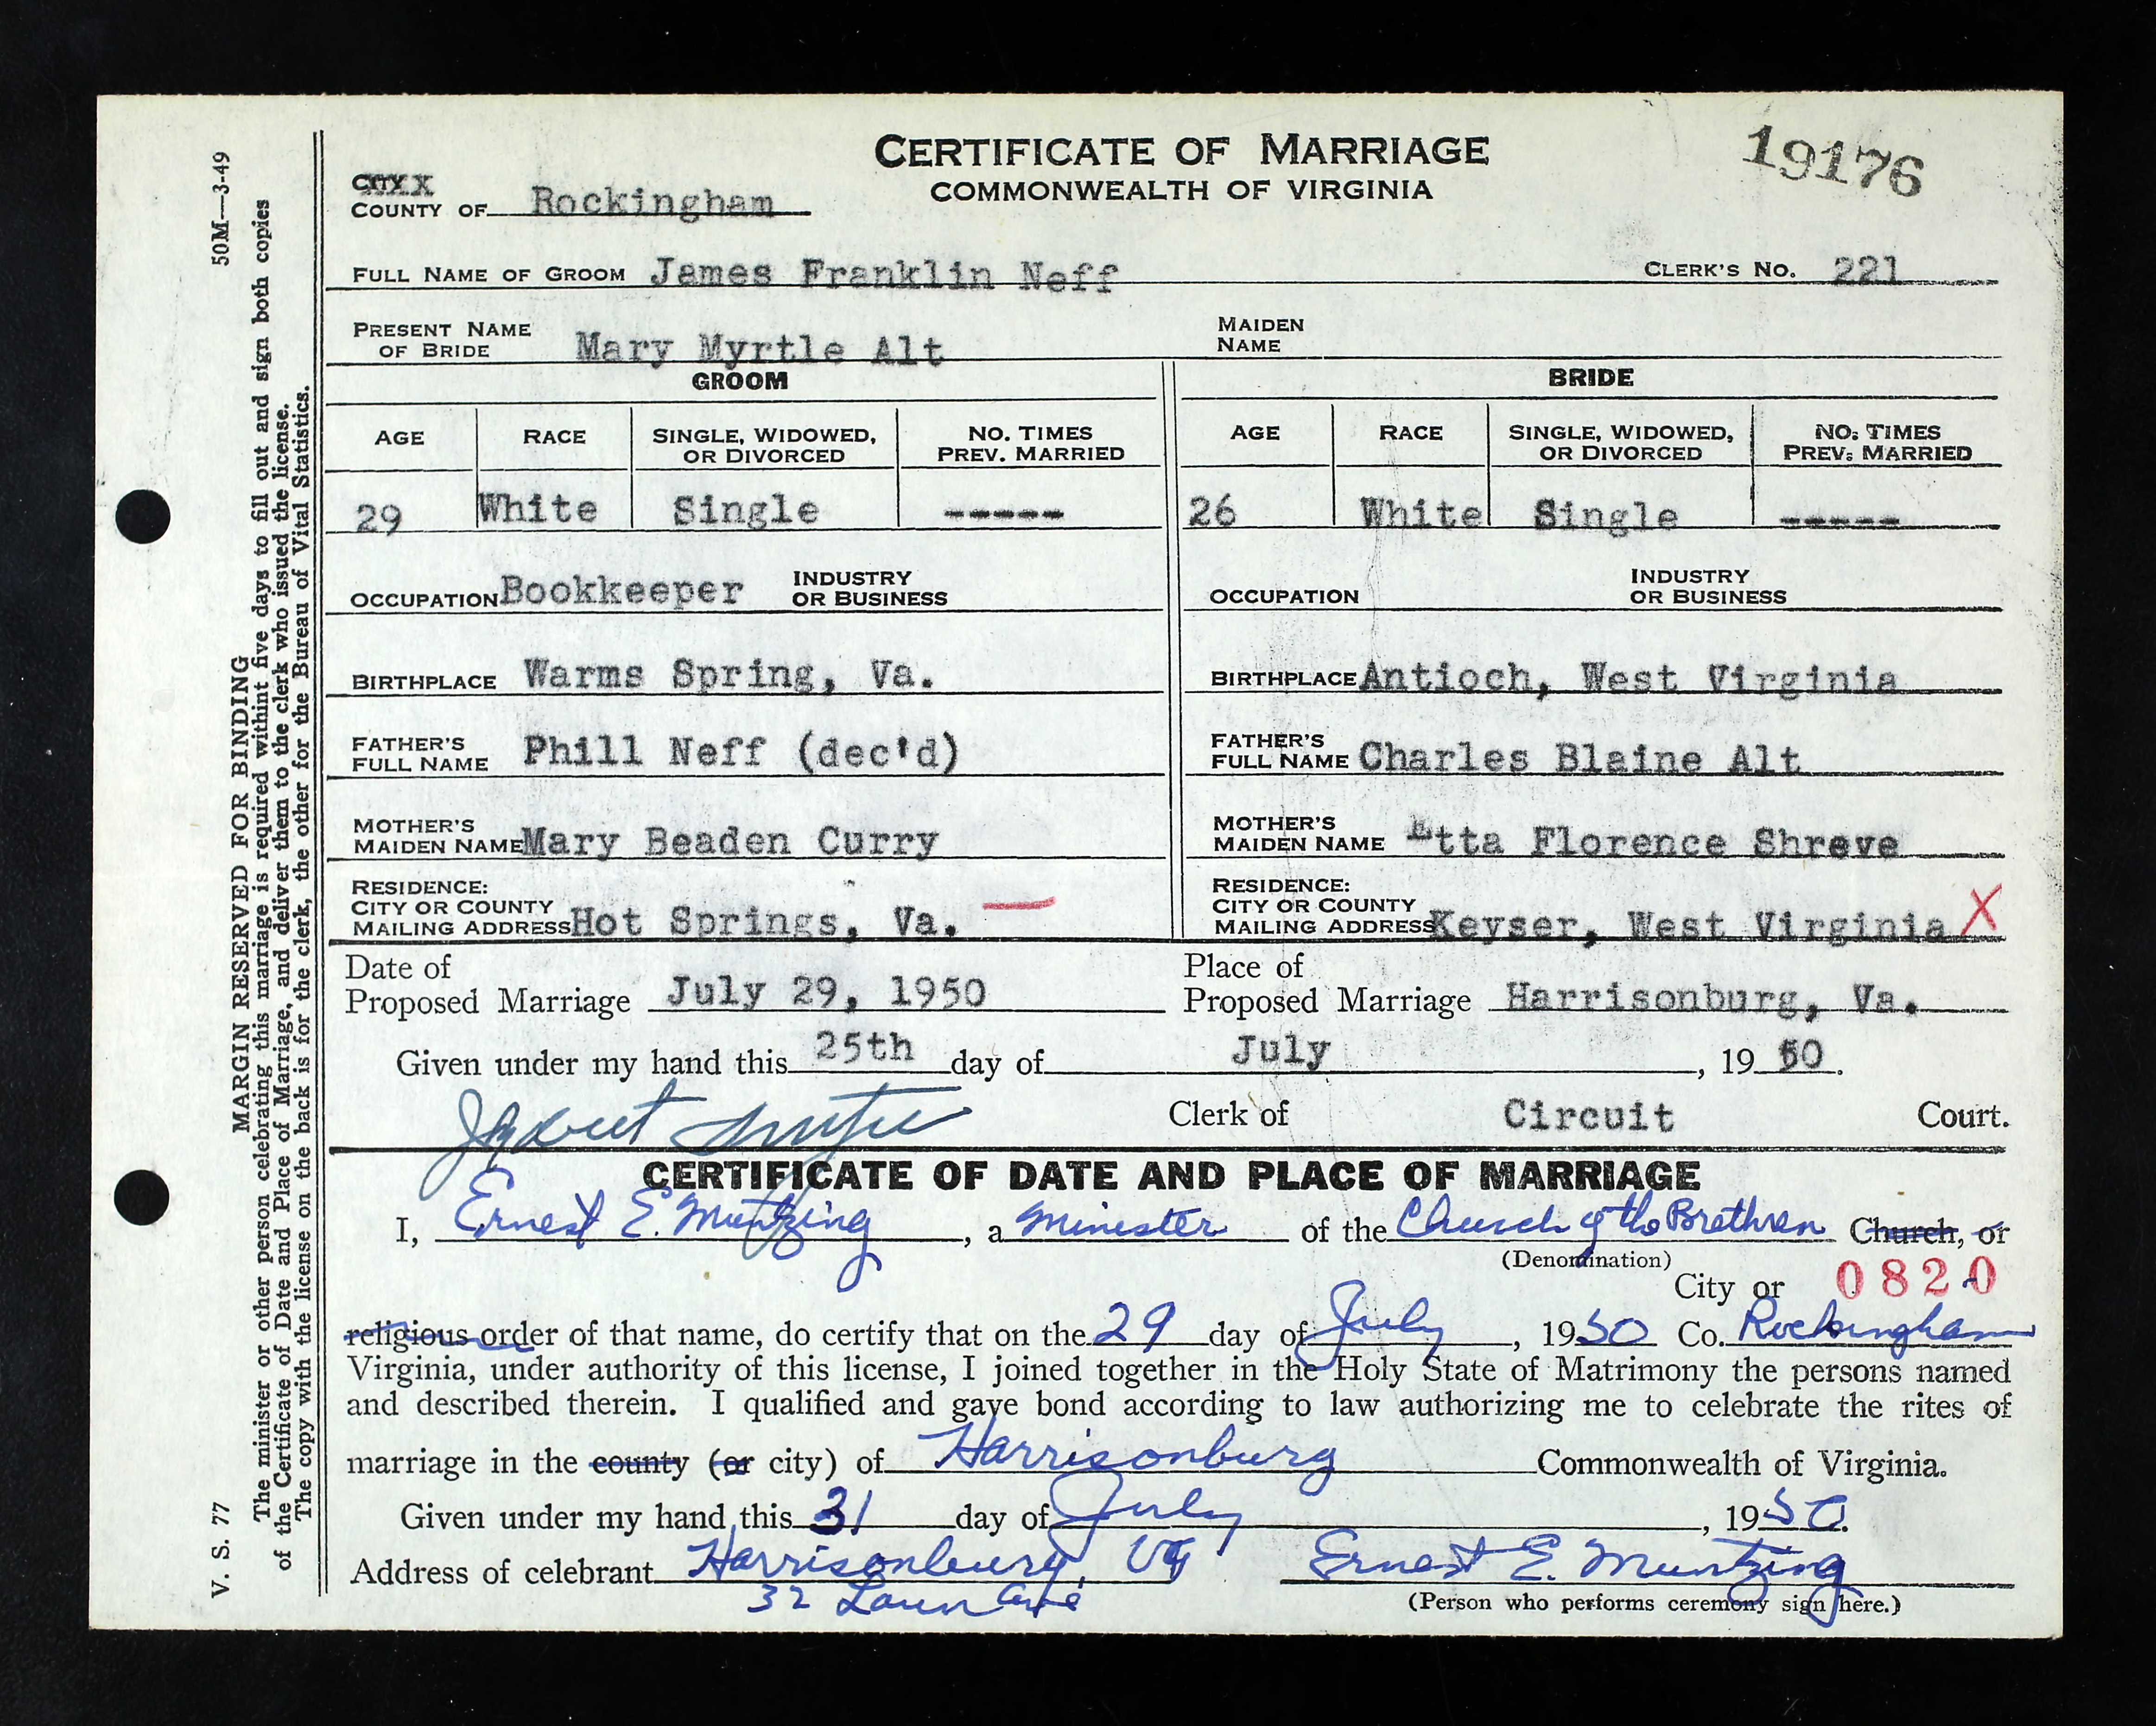 CERTIFICATE OF MARRIAGE
COMMONWEALTH OF VIRGINIA
19176
CITY
COUNTY OF Rockingham
FULL NAME OF GROOM James Franklin Neff CLERK'S NO. 221
PRESENT NAME OF BRIDE Mary Myrtle Alt MAIDEN NAME
GROOM BRIDE
AGE RACE SINGLE, WIDOWED, OR DIVORCED NO. TIMES PREV. MARRIED AGE RACE SINGLE, WIDOWED, OR DIVORCED NO. TIMES PREV. MARRIED
29 White Single ----- 26 White Single -----
OCCUPATION Bookkeeper INDUSTRY OR BUSINESS OCCUPATION INDUSTRY OR BUSINESS
BIRTHPLACE Warms Spring, Va. BIRTHPLACE Antioch, West Virginia
FATHER'S FULL NAME Phill Neff (dec'd) FATHER'S FULL NAME Charles Blaine Alt
MOTHER'S MAIDEN NAME Mary Beaden Curry MOTHER'S MAIDEN NAME Etta Florence Shreve
RESIDENCE: CITY OR COUNTY MAILING ADDRESS Hot Springs, Va. — RESIDENCE: CITY OR COUNTY MAILING ADDRESS Keyser, West Virginia X
Date of Proposed Marriage July 29, 1950 Place of Proposed Marriage Harrisonburg, Va.
Given under my hand this 25th day of July, 1950.
Clerk of Circuit Court.
CERTIFICATE OF DATE AND PLACE OF MARRIAGE
I, Ernest E. Muntzing, a Minister of the Church of the Brethren Church, or
(Denomination)
City or 0820
religious order of that name, do certify that on the 29 day of July, 1950 Co. Rockingham
Virginia, under authority of this license, I joined together in the Holy State of Matrimony the persons named
and described therein. I qualified and gave bond according to law authorizing me to celebrate the rites of
marriage in the county (or city) of Harrisonburg Commonwealth of Virginia.
Given under my hand this 31 day of July, 1950.
Address of celebrant Harrisonburg, Va Ernest E. Muntzing
32 Ave (Person who performs ceremony sign here.)
V. S. 77 MARGIN RESERVED FOR BINDING 50M—3-49
The minister or other person celebrating this marriage is required within five days to fill out and sign both copies
of the Certificate of Date and Place of Marriage, and deliver them to the clerk who issued the license.
The copy with the license on the back is for the clerk, the other for the Bureau of Vital Statistics.